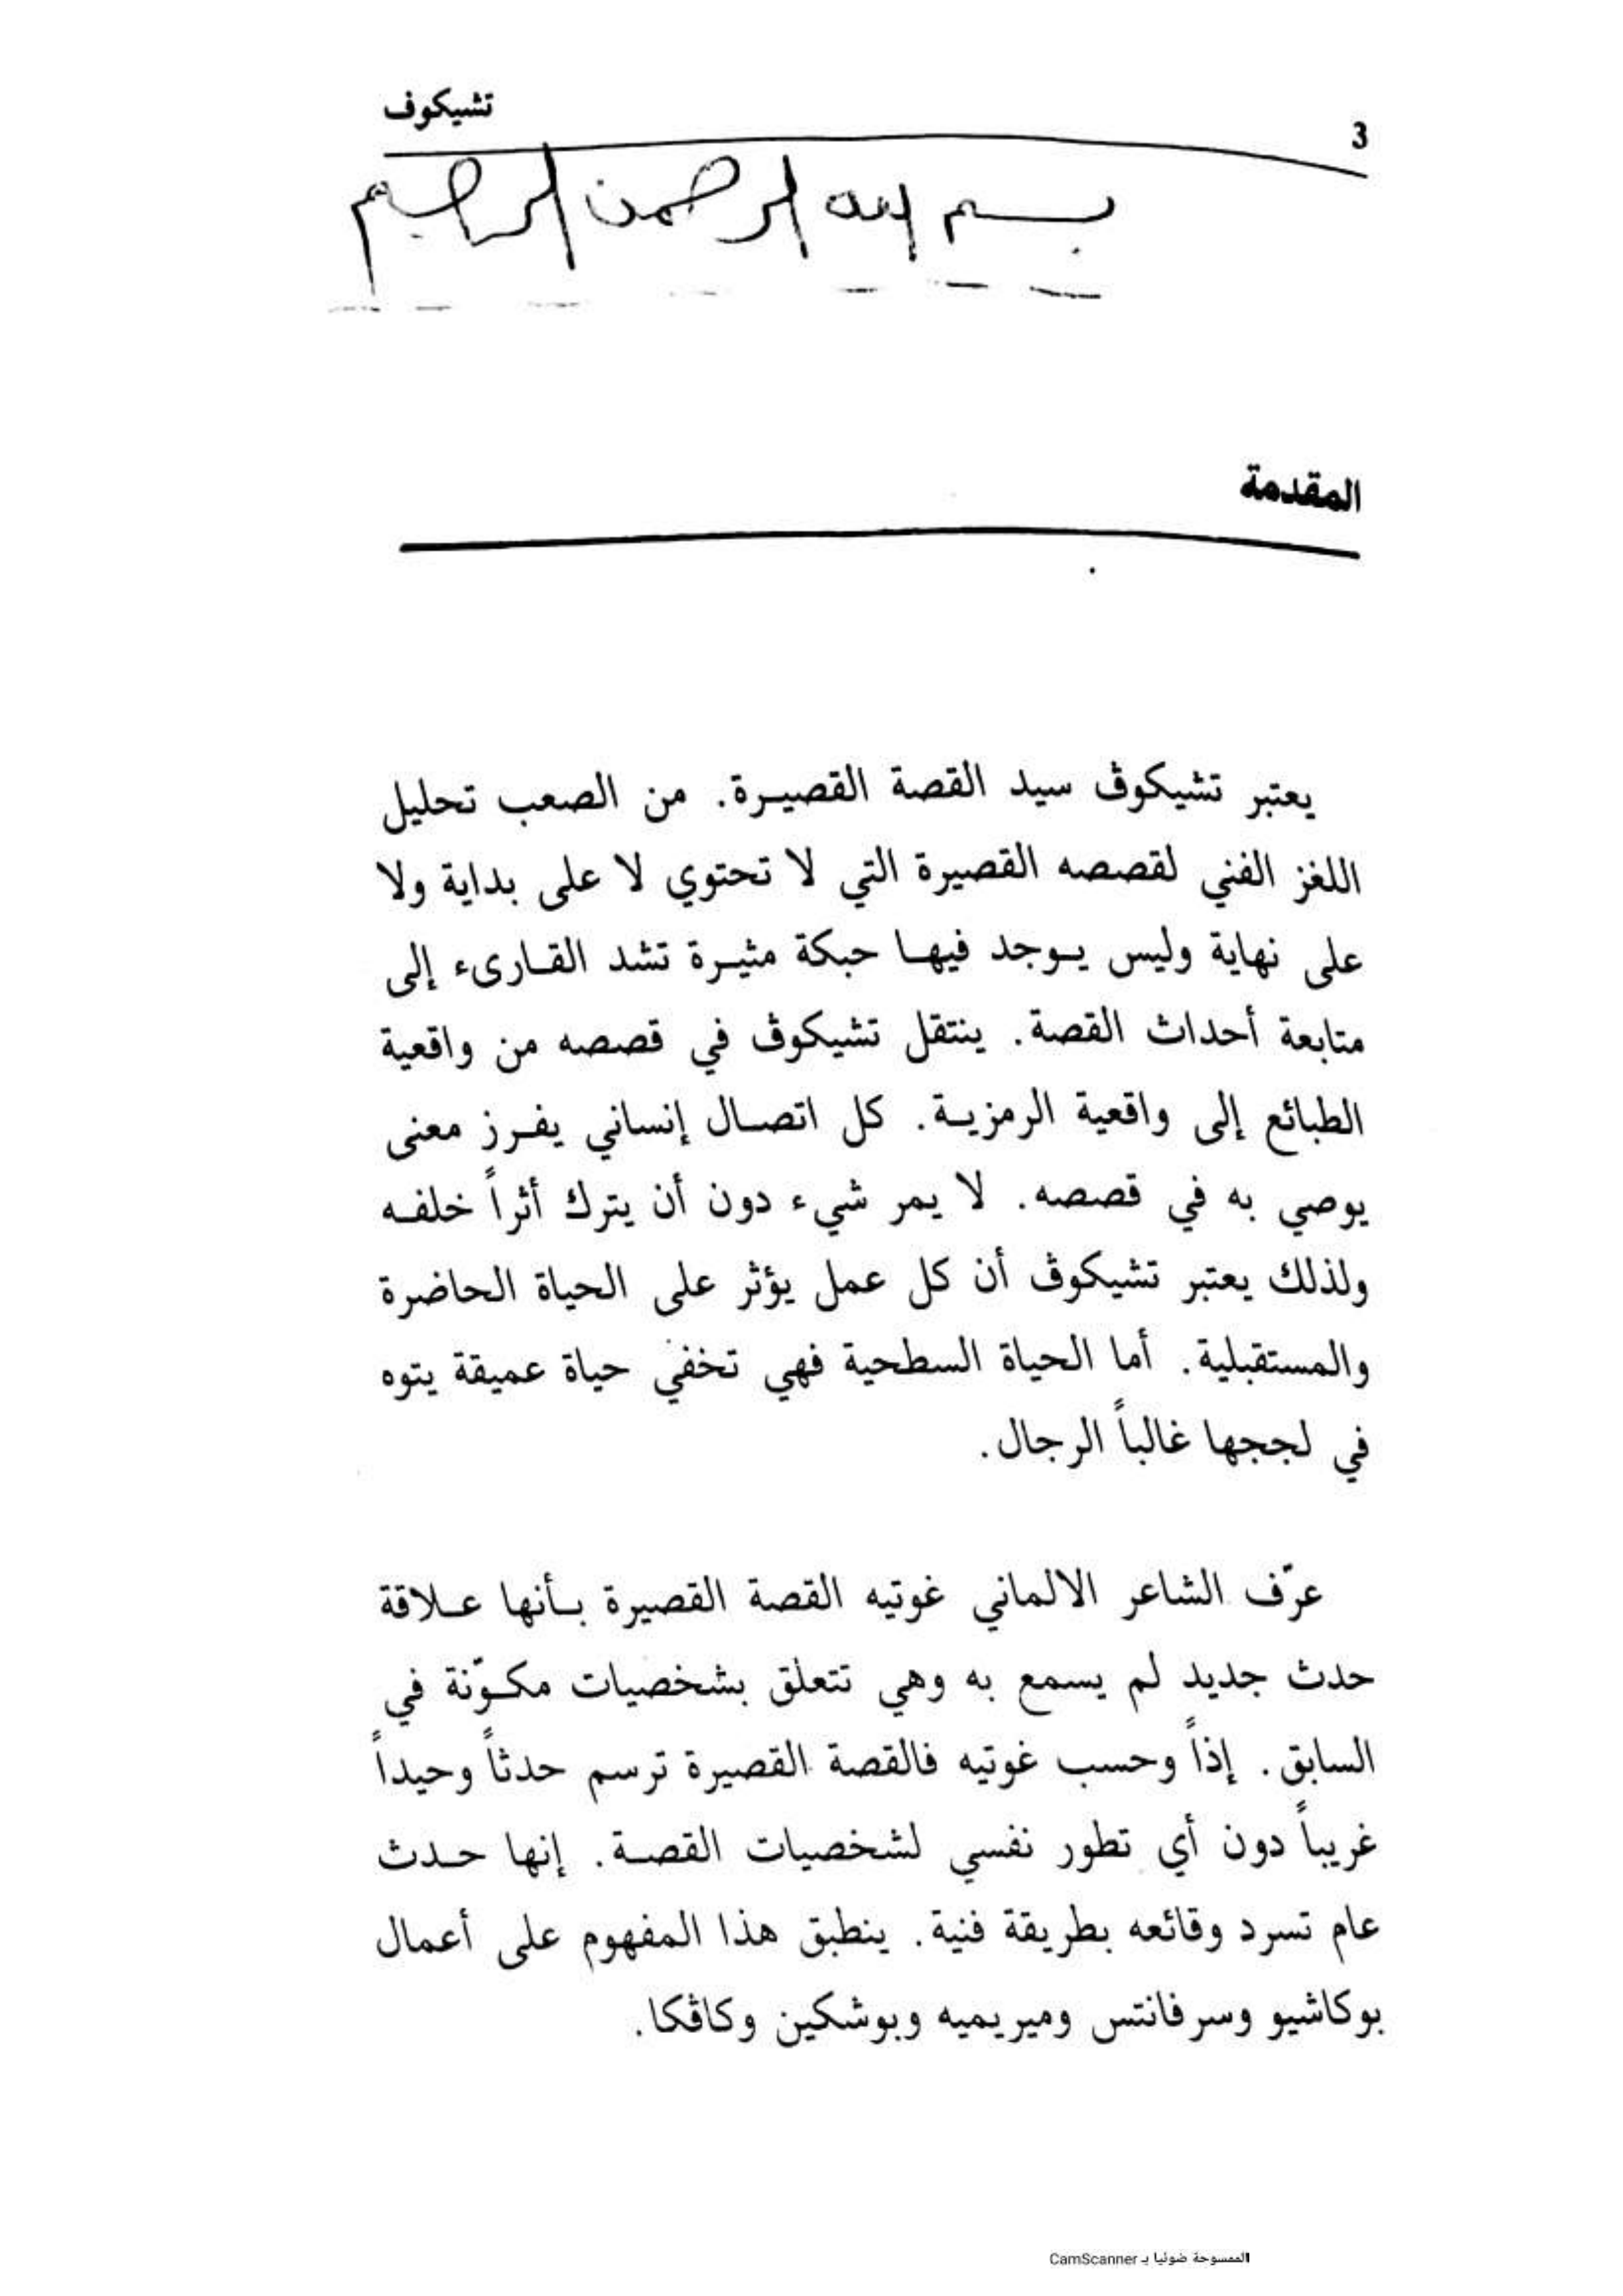 تشيكوف
3
بسم الله الرحمن الرحيم
المقدمة
يعتبر تشيكوڤ سيد القصة القصيرة. من الصعب تحليل
اللغز الفني لقصصه القصيرة التي لا تحتوي لا على بداية ولا
على نهاية وليس يوجد فيها حبكة مثيرة تشد القارىء إلى
متابعة أحداث القصة. ينتقل تشيكوڤ في قصصه من واقعية
الطبائع إلى واقعية الرمزية. كل اتصال إنساني يفرز معنى
يوصي به في قصصه. لا يمر شيء دون أن يترك أثراً خلفه
ولذلك يعتبر تشيكوڤ أن كل عمل يؤثر على الحياة الحاضرة
والمستقبلية. أما الحياة السطحية فهي تخفي حياة عميقة يتوه
في لججها غالباً الرجال.
عرّف الشاعر الالماني غوتيه القصة القصيرة بأنها علاقة
حدث جديد لم يسمع به وهي تتعلق بشخصيات مكوّنة في
السابق. إذاً وحسب غوتيه فالقصة القصيرة ترسم حدثاً وحيداً
غريباً دون أي تطور نفسي لشخصيات القصة. إنها حدث
عام تسرد وقائعه بطريقة فنية. ينطبق هذا المفهوم على أعمال
بوكاشيو وسرفانتس وميريميه وبوشكين وكاڤكا.
الممسوحة ضوئيا بـ CamScanner